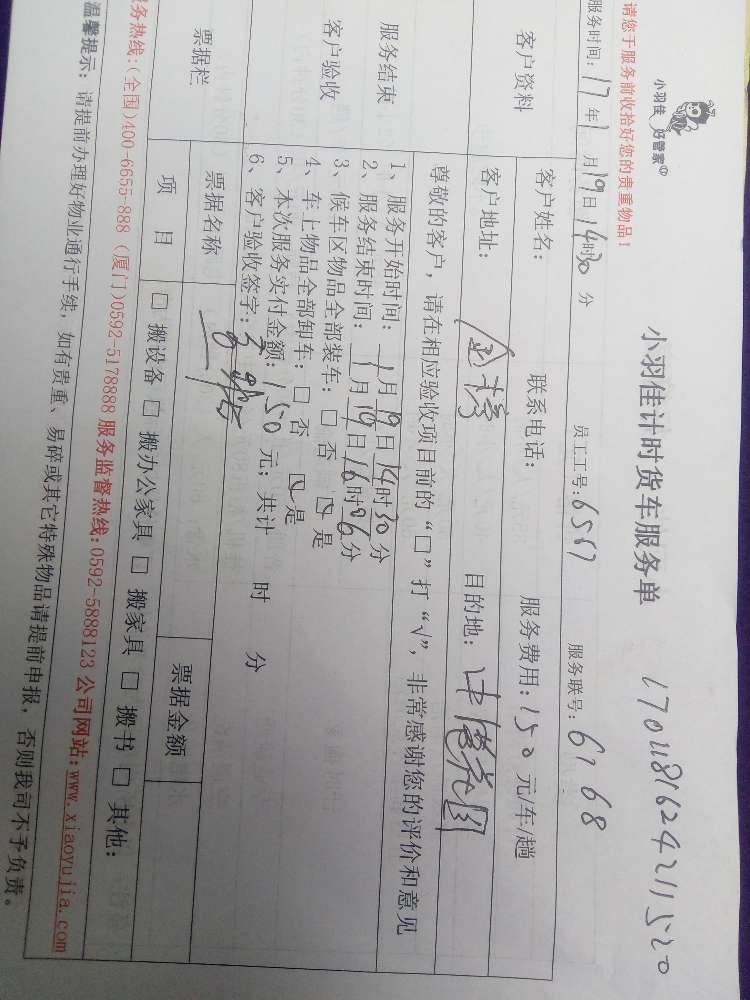 小羽佳 好管家
小羽佳计时货车服务单 170118162421520
请您于服务前收拾好您的贵重物品!
服务时间: 17 年 1 月 19 日 14 时 30 分 员工工号: 6517 服务联号: 6168
客户资料
客户姓名: 联系电话: 服务费用: 150 元/车/趟
客户地址: 目的地:
尊敬的客户,请在相应验收项目前的“□”打“√”,非常感谢您的评价和意见
服务结束
客户验收
1、服务开始时间: 1 月 19 日 14 时 30 分
2、服务结束时间: 1 月 19 日 16 时 06 分
3、候车区物品全部装车: □ 否 ☑ 是
4、车上物品全部卸车: □ 否 ☑ 是
5、本次服务实付金额: 150 元; 共计 时 分
6、客户验收签字:
票据栏
票据名称 票据金额
项 目 □ 搬设备 □ 搬办公家具 □ 搬家具 □ 搬书 □ 其他:
务热线:(全国)400-6655-888 (厦门)0592-5178888 服务监督热线:0592-5888123 公司网站:www.xiaoyujia.com
温馨提示: 请提前办理好物业通行手续, 如有贵重、易碎或其它特殊物品请提前申报, 否则我司不予负责。